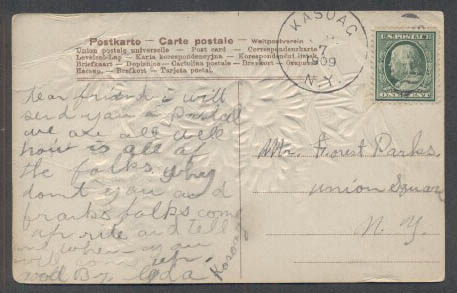 Postkarte – Carte postale – Weltpostverein
Union postale universelle – Post card – Correspondenzkarte
Levelezö-lap – Karta korespondencyjna – Korespondenční lístek
Briefkaart – Dopisnice – Cartolina postale – Brevkort –
– Brefkort – Tarjeta postal.
KASOAG
7
1909
N.Y.
U.S. POSTAGE
ONE CENT
dear friend i will
send you a postal
we are all well
how is all of
the folks why
dont you and
franks folks come
up rite and tell
me when you
will come up.
well By Ada
Kasoag
Mr. Forest Parks
Union Square
N. Y.